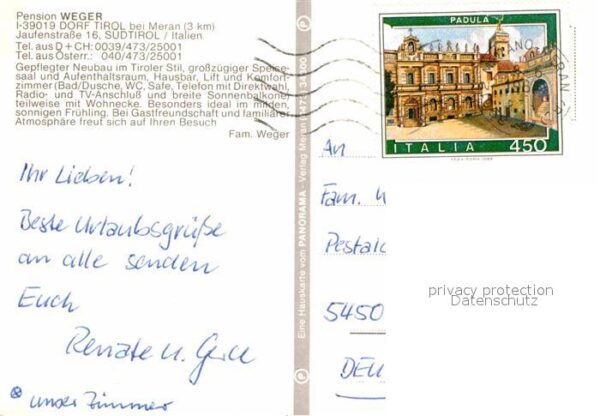 Pension WEGER
I-39019 DORF TIROL bei Meran (3 km)
Jaufenstraße 16, SÜDTIROL / Italien
Tel. aus D + CH: 0039/473/25001
Tel. aus Österr.: 040/473/25001
Gepflegter Neubau im Tiroler Stil, großzügiger Speise-
saal und Aufenthaltsraum, Hausbar, Lift und Komfort-
zimmer (Bad/Dusche, WC, Safe, Telefon mit Direktwahl,
Radio- und TV-Anschluß und breite Sonnenbalkone,
teilweise mit Wohnecke. Besonders ideal im milden,
sonnigen Frühling. Bei Gastfreundschaft und familiärer
Atmosphäre freut sich auf Ihren Besuch
Fam. Weger
Ihr Lieben!
Beste Urlaubsgrüße
an alle senden
Euch
Renate u.
⊗ unser Zimmer
Eine Hauskarte vom PANORAMA - Verlag Meran
PADULA
ITALIA 450
An
Fam. W
Pestalo
5450
DEU
privacy protection
Datenschutz